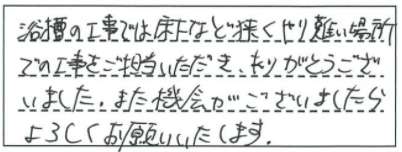 浴槽の工事では床下など狭くやり難い場所
での工事をご担当いただき、ありがとうござ
いました。また機会がございましたら
よろしくお願いいたします。